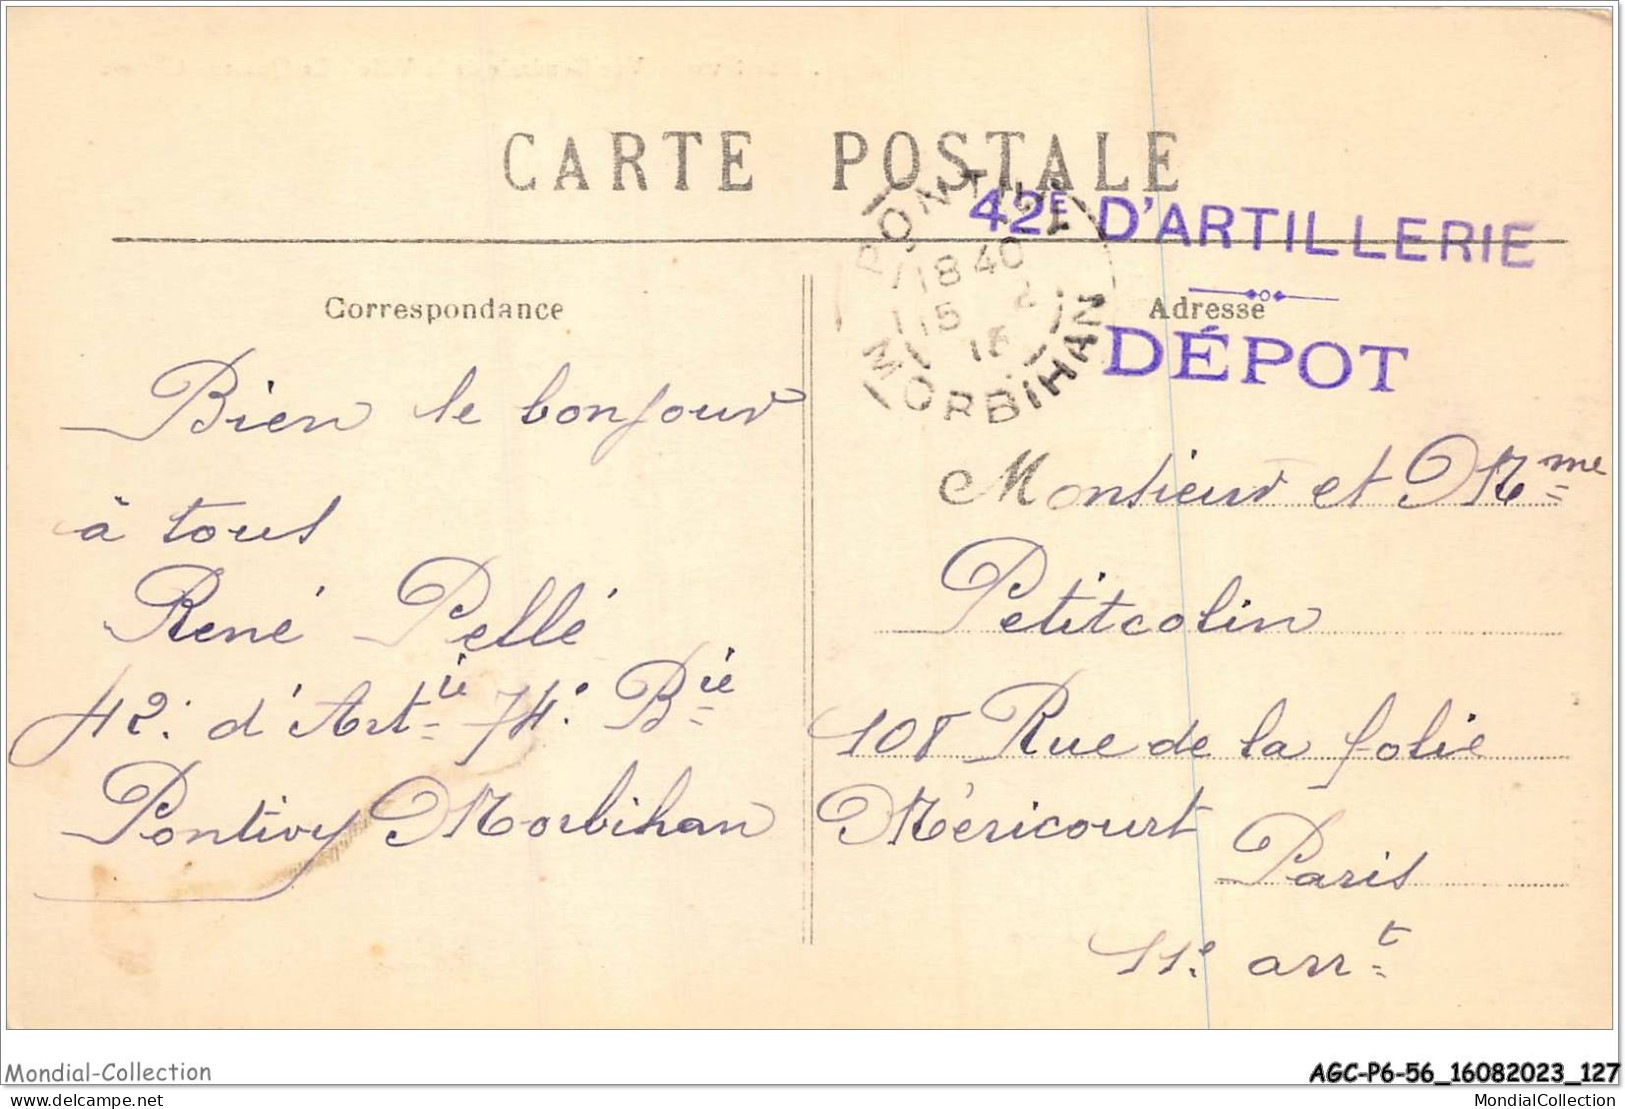 CARTE POSTALE
42E D'ARTILLERIE
DÉPOT
PONTIVY
18 40
15 2
MORBIHAN
Correspondance
Bien le bonjour
à tous
René Pellé
42e d'Artie 74e Bie
Pontivy Morbihan
Adresse
Monsieur et Mme
Petitcolin
108 Rue de la folie
Méricourt
Paris
11e arrt
Mondial-Collection
AGC-P6-56_16082023_127
delcampe.net
MondialCollection